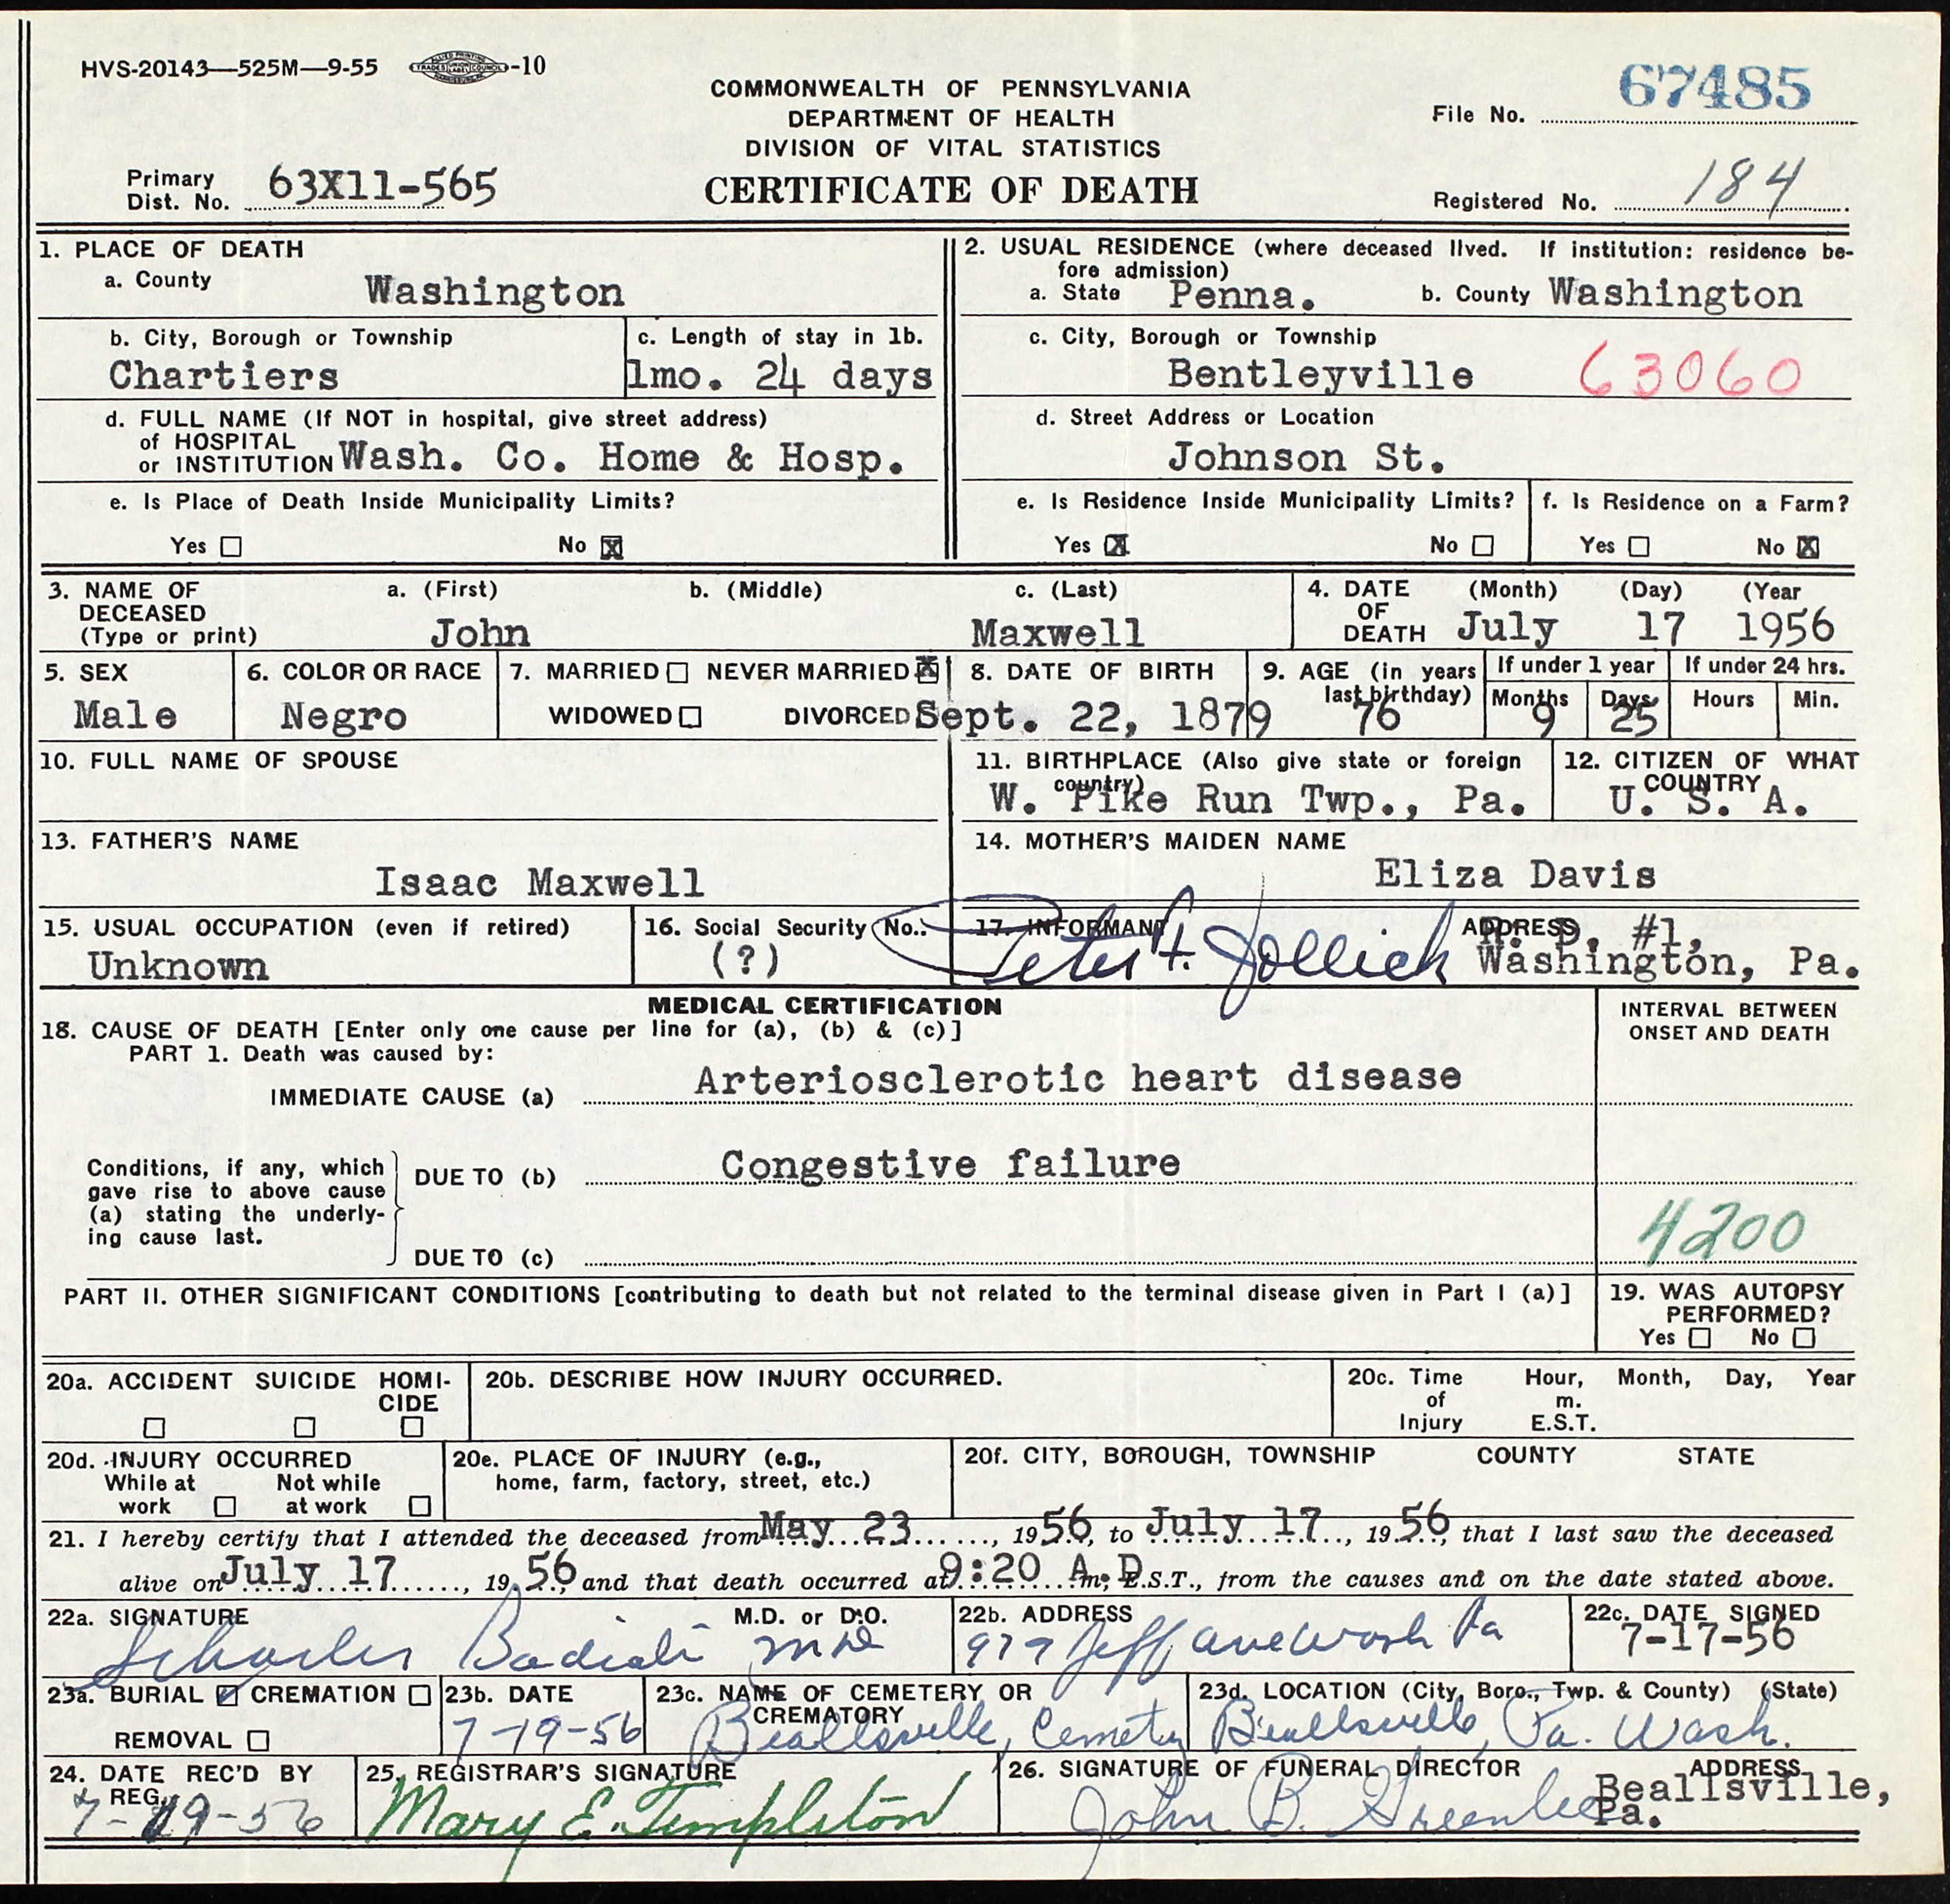 HVS-20143—525M—9-55 -10
COMMONWEALTH OF PENNSYLVANIA
DEPARTMENT OF HEALTH
DIVISION OF VITAL STATISTICS
CERTIFICATE OF DEATH
File No. 67485
Primary
Dist. No. 63X11-565
Registered No. 184
1. PLACE OF DEATH
a. County Washington
b. City, Borough or Township
Chartiers
c. Length of stay in 1b.
1mo. 24 days
d. FULL NAME (If NOT in hospital, give street address)
of HOSPITAL
or INSTITUTION Wash. Co. Home & Hosp.
e. Is Place of Death Inside Municipality Limits?
Yes ☐ No ☒
2. USUAL RESIDENCE (where deceased lived. If institution: residence be-
fore admission)
a. State Penna. b. County Washington
c. City, Borough or Township
Bentleyville 63060
d. Street Address or Location
Johnson St.
e. Is Residence Inside Municipality Limits?
Yes ☒ No ☐
f. Is Residence on a Farm?
Yes ☐ No ☒
3. NAME OF
DECEASED
(Type or print)
a. (First) b. (Middle) c. (Last)
John Maxwell
4. DATE
OF
DEATH
(Month) (Day) (Year
July 17 1956
5. SEX
Male
6. COLOR OR RACE
Negro
7. MARRIED ☐ NEVER MARRIED ☒
WIDOWED ☐ DIVORCED
8. DATE OF BIRTH
Sept. 22, 1879
9. AGE (in years
last birthday)
76
If under 1 year
Months Days
9 25
If under 24 hrs.
Hours Min.
10. FULL NAME OF SPOUSE
11. BIRTHPLACE (Also give state or foreign
country)
W. Pike Run Twp., Pa.
12. CITIZEN OF WHAT
COUNTRY
U. S. A.
13. FATHER'S NAME
Isaac Maxwell
14. MOTHER'S MAIDEN NAME
Eliza Davis
15. USUAL OCCUPATION (even if retired)
Unknown
16. Social Security No.:
(?)
17. INFORMANT
Peter F. Jollick
ADDRESS
R. D. #1,
Washington, Pa.
MEDICAL CERTIFICATION
18. CAUSE OF DEATH [Enter only one cause per line for (a), (b) & (c)]
PART 1. Death was caused by:
IMMEDIATE CAUSE (a) Arteriosclerotic heart disease
INTERVAL BETWEEN
ONSET AND DEATH
Conditions, if any, which
gave rise to above cause
(a) stating the underly-
ing cause last.
DUE TO (b) Congestive failure
DUE TO (c)
4200
PART II. OTHER SIGNIFICANT CONDITIONS [contributing to death but not related to the terminal disease given in Part I (a)]
19. WAS AUTOPSY
PERFORMED?
Yes ☐ No ☐
20a. ACCIDENT SUICIDE HOMI-
CIDE
☐ ☐ ☐
20b. DESCRIBE HOW INJURY OCCURRED.
20c. Time Hour, Month, Day, Year
of m.
Injury E.S.T.
20d. INJURY OCCURRED
While at Not while
work ☐ at work ☐
20e. PLACE OF INJURY (e.g.,
home, farm, factory, street, etc.)
20f. CITY, BOROUGH, TOWNSHIP COUNTY STATE
21. I hereby certify that I attended the deceased from May 23, 1956, to July 17, 1956, that I last saw the deceased
alive on July 17, 1956, and that death occurred at 9:20 A.D m, E.S.T., from the causes and on the date stated above.
22a. SIGNATURE M.D. or D.O.
Badiali MD
22b. ADDRESS
979 Jeff ave Wash Pa
22c. DATE SIGNED
7-17-56
23a. BURIAL ☑ CREMATION ☐
REMOVAL ☐
23b. DATE
7-19-56
23c. NAME OF CEMETERY OR
CREMATORY
Beallsville, Cemetery
23d. LOCATION (City, Boro., Twp. & County) (State)
Beallsville, Pa. Wash.
24. DATE REC'D BY
REG.
7-19-56
25. REGISTRAR'S SIGNATURE
Mary E. Templeton
26. SIGNATURE OF FUNERAL DIRECTOR
John B. Greenlee
ADDRESS
Beallsville,
Pa.